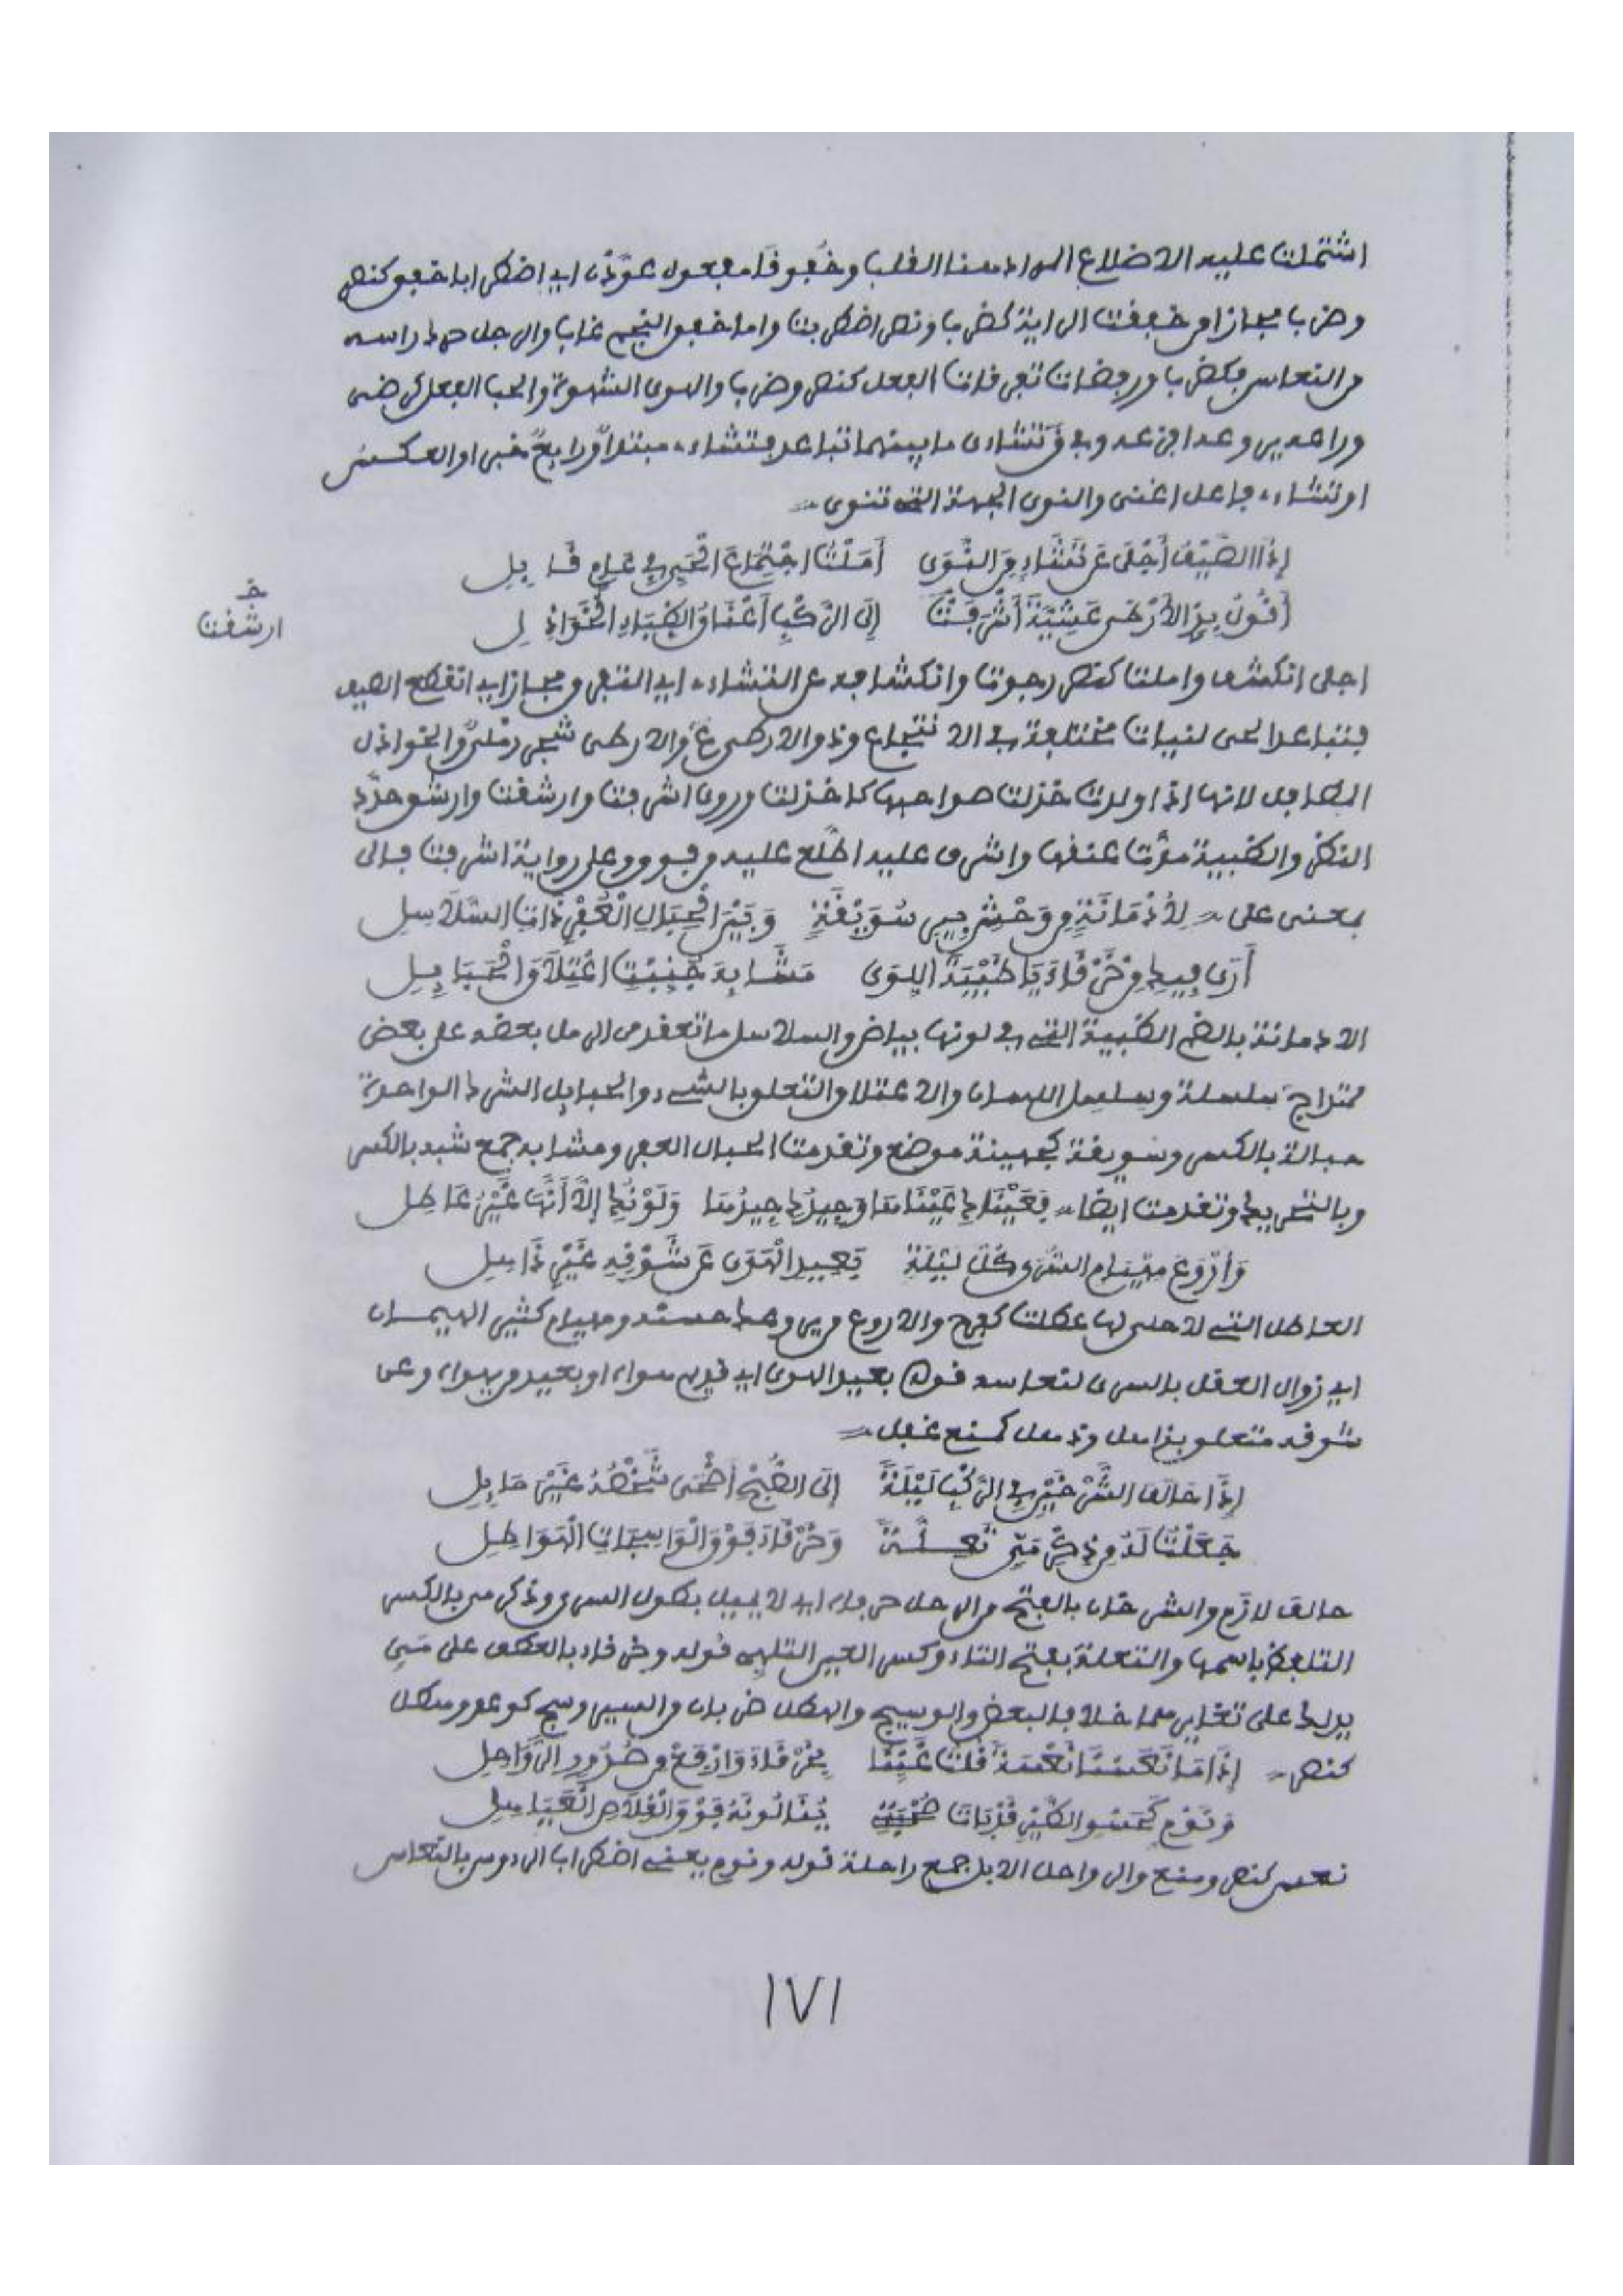 اشتملت عليه الاضلاع المراد هنا القلب وخفوقا مفعول عوّذت اي اضطرابا خفق كنصر
وضرب مجازا من خفقت الراية كضرب ونصر اضطربت واما خفق النجم غاب والرجل حرك راسه
من النعاس فكضرب ورفضات تفرقات الفعل كنصر وضرب والهوى الشهوة والحب الفعل كرضى
او تشاء فاعل اغنى والنوى الجهة التي تنوى
إِذَا الصَّيْفُ أَجْلَى عَن تَشَاءٍ مِنَ النَّوَى أَمَلْتُ اجْتِمَاعَ الْحَيِّ فِي عَامِ قَابِلِ
أَقُولُ بِذِي الأَرْطَى عَشِيَّةَ أَشْرَفَتْ إِلَى الرَّكْبِ أَعْنَاقُ الظِّبَاءِ الْخَوَاذِلِ
ارشقت
اجلى انكشف واملت كنصر رجوت وانكشافه عن التشاء اي التفرق مجاز اي انقطع الصيف
فتباعد الحى لنيات مختلفة في الانتجاع وذو الارطى ع والارطى شجر رملي والخواذل
المطافل لانها اذا ولدت خذلت صواحبها كاخذلت وروى اشرفت وارشقت وارشق حدّد
النظر والظبية مدّت عنقها واشرف عليه اطّلع عليه من فوق وعلى رواية اشرفت فالى
بمعنى على لِأُدْمَانَةٍ مِن وَحْشِ بَيْنَ سُوَيْقَةٍ وَبَيْنَ الْحِبَالِ الْعُفْرِ ذَاتِ السَّلَاسِلِ
أَرَى فِيكِ مِنْ خَرْقَاءَ يَا ظَبْيَةَ اللِّوَى مَشَابِهَ جُنِّبْتِ اعْتِلَاقَ الْحَبَائِلِ
الادمانة بالضم الظبية التي في لونها بياض والسلاسل ما تعقد من الرمل بعضه على بعض
سلسلة وسلسل والاعتلاق التعلق بالشيء والحبايل الشرك الواحدة
حبالة بالكسر وسويقة كجهينة موضع وتقدمت الحبال العفر ومشابه جمع شبه بالكسر
وبالتحريك وتقدمت ايضا فَعَيْنَاكِ عَيْنَاهَا وَجِيدُكِ جِيدُهَا وَلَوْنُكِ إِلَّا أَنَّهَا غَيْرُ عَاطِلِ
وَأَرْوَعَ مِهْيَامِ السُّرَى كُلَّ لَيْلَةٍ بَعِيدِ الْهَوَى عَن شَوْقِهِ غَيْرِ ذَاهِلِ
العاطل التي لا حلى لها عطلت كفرح والاروع من يروعك حسنه ومهيام كثير الهيمان
اي زوال العقل بالسرى لنعاسه قوله بعيد الهوى اي قديم سواه او بعيد من يهواه وعن
شوقه متعلق بذاهل وذهل كمنع غفل
إِذَا حَالَفَ الشَّرْخَيْنِ فِي الرَّكْبِ لَيْلَةً إِلَى الصُّبْحِ أَضْحَى شَخْصُهُ غَيْرَ مَائِلِ
جَعَلْتُ لَهُ مِن ذِكْرِ مَيٍّ تَعِلَّةً وَخَرْقَاءَ فَوْقَ الْوَاسِجَاتِ الْهَوَاطِلِ
حالف لازم والشرخان بالفتح من الرحل حرفاه اي لا يميل بطول السرى وذكر مي بالكسر
التلفظ باسمها والتعلة بفتح التاء وكسر العين التلهي قوله وخرقاء بالعطف على مَيّ
يدلك على تغايرهما خلافا لبعض والوسيج والهطل ضربان من السير وسج كوعد وهطل
كنصر إِذَا مَا نَعَسْنَا نَعْسَةً قُلْتُ غَنِّنَا بِخَرْقَاءَ وَارْفَعْ مِن صُدُورِ الرَّوَاحِلِ
وَنَوْمٍ كَحَسْوِ الطَّيْرِ قَدْ بَاتَ صُحْبَتِي يَنَالُونَهُ فَوْقَ الْقِلَاصِ الْعَيَاهِلِ
نعس كنصر ومنع والرواحل الابل جمع راحلة قوله ونوم يعني اضطراب الرءوس بالنعاس
١٧١